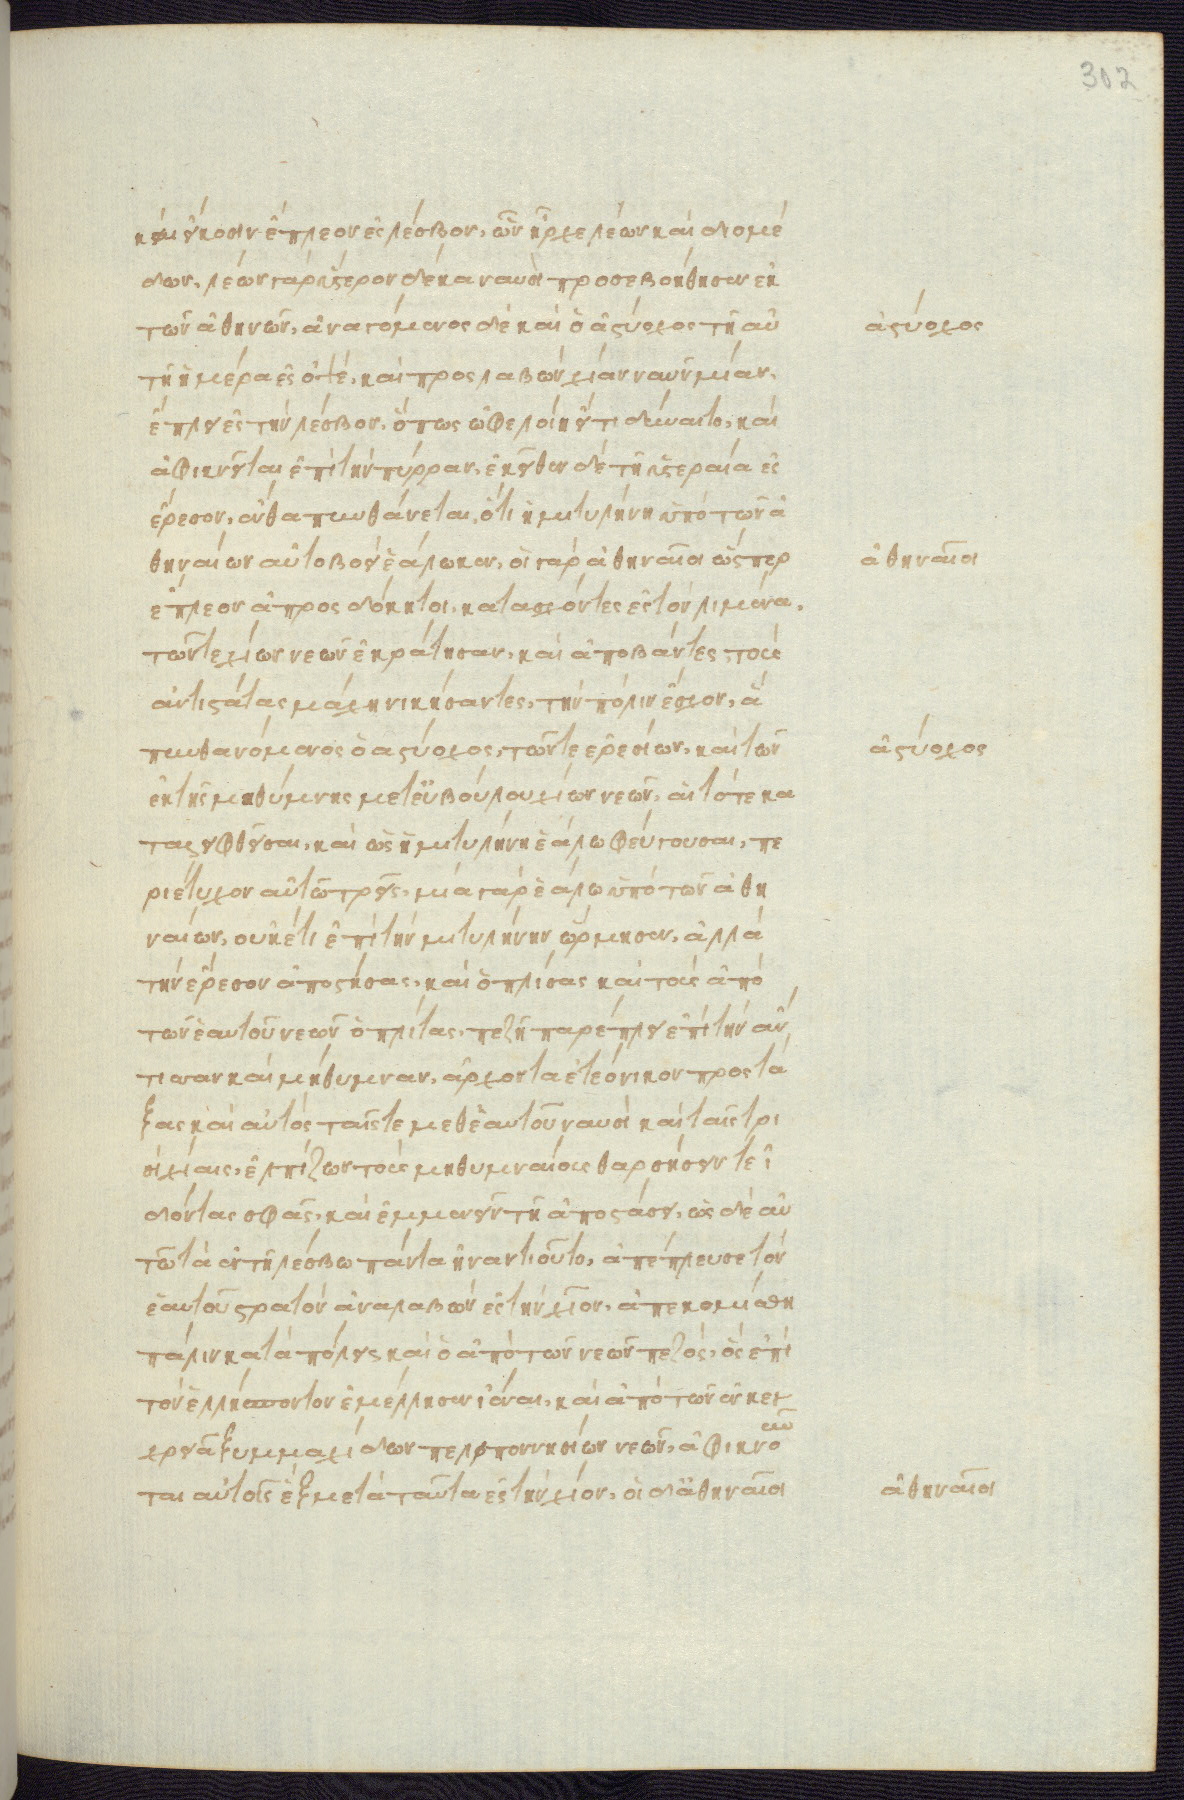 302
καὶ εἴκοσιν ἔπλεον ἐς λέσβον, ὧν ἦρχε λέων καὶ διομέ
δων, λέων γὰρ ὕστερον δέκα ναυσὶ προσεβοήθησεν ἐκ
τῶν ἀθηνῶν, ἀναγόμενος δὲ καὶ ὁ ἀστύοχος τῆ αὐ
ἀστύοχος
τῆ ἡμέρα ἐς ὀψέ, καὶ προσλαβὼν χίαν ναῦν μίαν,
ἔπλει ἐς τὴν λέσβον, ὅπως ὠφελοίη εἴ τι δύναιτο, καὶ
ἀφικνεῖται ἐπὶ τὴν πύρραν, ἐκεῖθεν δὲ τῆ ὑστεραία ἐς
ἔρεσον, ἔνθα πυνθάνεται, ὅτι ἡ μιτυλήνη ὑπὸ τῶν ἀ
θηναίων αὐτοβοεὶ ἑάλωκεν, οἱ γὰρ ἀθηναῖοι ὥσπερ
ἀθηναῖοι
ἔπλεον ἀπροσδόκητοι, κατασχόντες ἐς τὸν λιμένα,
τῶν τε χίων νεῶν ἐκράτησαν, καὶ ἀποβάντες, τοὺς
ἀντιστάτας μάχη νικήσαντες, τὴν πόλιν ἔσχον, ἃ
πυνθανόμενος ὁ ἀστύοχος, τῶν τε ἐρεσίων, καὶ τῶν
ἀστύοχος
ἐκ τῆς μηθύμνης μετ' εὐβούλου χίων νεῶν, αἳ τότε κα
ταλειφθεῖσαι, καὶ ὡς ἡ μιτυλήνη ἑάλω φεύγουσαι, πε
ριέτυχον αὐτῶ τρεῖς, μία γὰρ ἑάλω ὑπὸ τῶν ἀθη
ναίων, οὐκέτι ἐπὶ τὴν μιτυλήνην ὥρμησεν, ἀλλὰ
τὴν ἔρεσον ἀποστήσας, καὶ ὁπλίσας καὶ τοὺς ἀπὸ
τῶν ἑαυτοῦ νεῶν ὁπλίτας, πεζῆ παρέπλει ἐπὶ τὴν ἄν
τισσαν καὶ μήθυμναν, ἄρχοντα ἐτεόνικον προστά
ξας καὶ αὐτὸς ταῖς τε μεθ' ἑαυτοῦ ναυσὶ καὶ ταῖς τρι
σὶ χίαις, ἐλπίζων τοὺς μηθυμναίους θαρσήσειν τε ἰ
δόντας σφᾶς, καὶ ἐμμενεῖν τῆ ἀποστάσει, ὡς δὲ αὐ
τῶ τὰ ἐν τῆ λέσβω πάντα ἠναντιοῦτο, ἀπέπλευσε τὸν
ἑαυτοῦ στρατὸν ἀναλαβὼν ἐς τὴν χίον, ἀπεκομίσθη
πάλιν κατὰ πόλεις καὶ ὁ ἀπὸ τῶν νεῶν πεζός, ὃς ἐπὶ
τὸν ἑλλήσποντον ἐμέλλησεν ἰέναι, καὶ ἀπὸ τῶν ἐν κεγ
χρειᾶ ξυμμαχίδων πελοποννησίων νεῶν, ἀφικνοῦν
ται αὐτοῖς ἓξ μετὰ ταῦτα ἐς τὴν χίον, οἱ δ' ἀθηναῖοι
ἀθηναῖοι